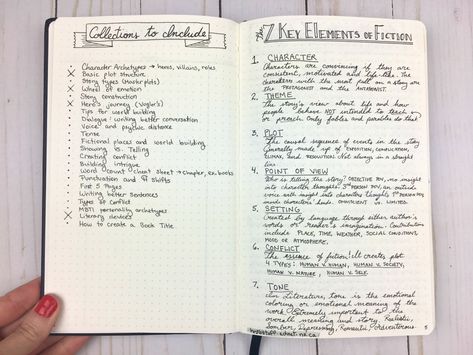 Collections to Include
Character Archetypes → heros, villains, roles
x Basic plot structure
Story types (Masterplots)
x Wheel of emotion
Story construction
x Hero's journey (Vogler's)
x Tips for world building
Dialogue: writing better conversation
Voice and psychic distance
Tense
Fictional places and world building
Showing vs. Telling
Creating conflict
Building intrigue
Word count cheat sheet → Chapter, ex. books
Punctuation and # Shifts
First 5 Pages
Writing better sentences
Types of conflict
x MBTI personality archetypes
Literary devices
How to create a Book Title
The 7 Key Elements of Fiction
1. CHARACTER
Characters are convincing if they are
consistent, motivated and life-like. The
characters with the most pull on a story are
the PROTAGONIST and the ANTAGONIST.
2. THEME
The story's view about life and how
people behave. NOT intended to teach
or preach. Only fables and parables do that
3. PLOT
The causal sequence of events in the story
Generally made up of EXPOSITION, COMPLICATION,
CLIMAX, and RESOLUTION. Not always in a straight
line.
4. POINT OF VIEW
Who is telling the story? OBJECTIVE POV, no insight
into character thoughts. 3rd PERSON POV, an outside
voice with insight into characters thoughts. 1st PERSON POV
inside characters' heads. OMNISCIENT vs. LIMITED.
5. SETTING
Created by language through either author's
words or reader's imagination. Contributions
include PLACE, TIME, WEATHER, SOCIAL CONDITIONS,
MOOD or ATMOSPHERE.
6. CONFLICT
The essence of fiction. It creates plot
4 TYPES: HUMAN V. HUMAN, HUMAN V. SOCIETY,
HUMAN V. NATURE, HUMAN V. SELF
7. TONE
In Literature, tone is the emotional
coloring or emotional meaning of
the work. Extremely important to the
overall meaning and story. Realistic,
Somber, Depressing, Romantic, Adventurous
5